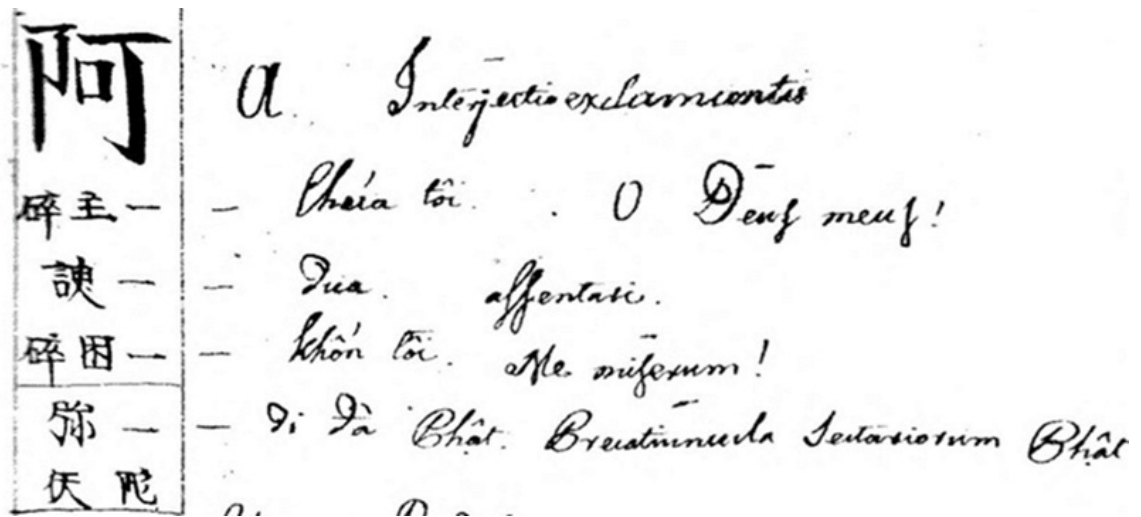 阿 A. Interjectio exclamantis
碎主一 – Chúa tôi. O Deus meus!
諛一 – dua. assentari.
碎困一 – khốn tôi. Me miserum!
弥一 – di đà Phật. Precatiuncula Sectariorum Phật
陀